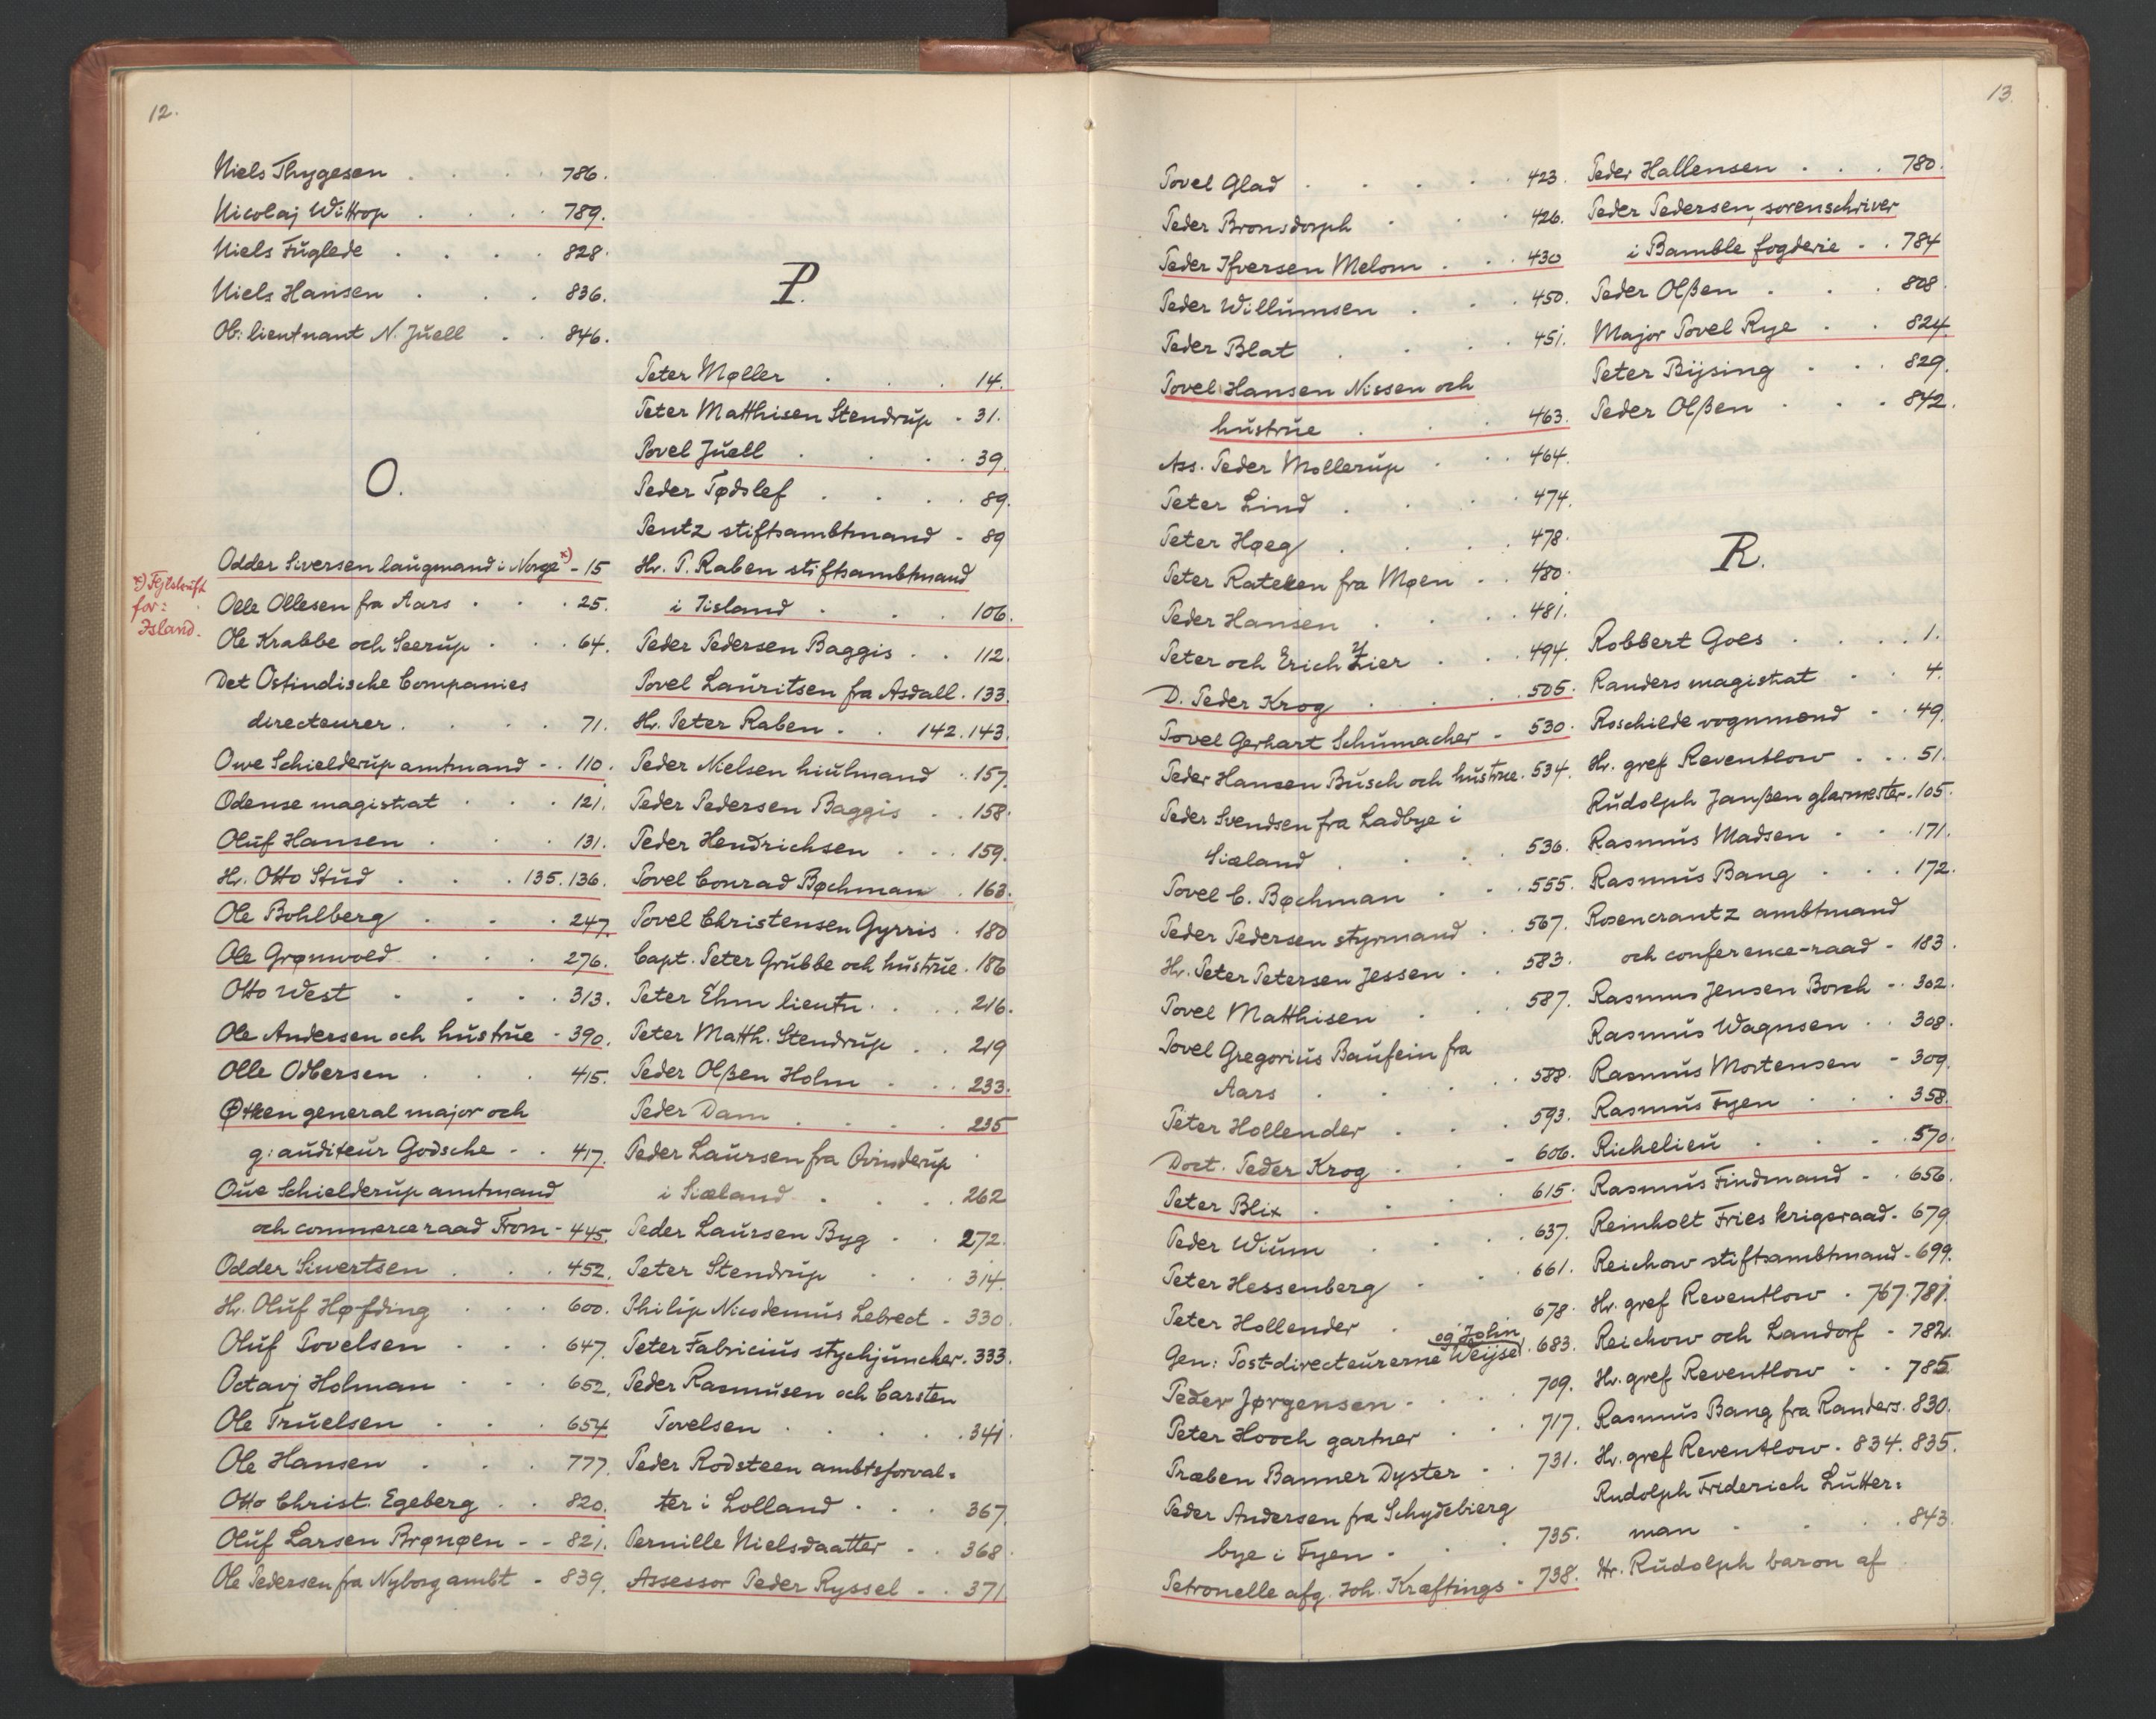 12.
Niels Thygesen . . . . 786.
Nicolaj Wittrop . . . . 789.
Niels Fuglede . . . . 828.
Niels Hansen . . . 836.
Ob: lieutnant N. Juell . . 846.
O.
Odder Siversen laugmand i Norge x) - 15
x) Fejlskrift
for:
Island.
Olle Ollesen fra Aars . . . 25.
Ole Krabbe och Seerup . . . 64.
Det Ostindische Companies
directeurer . . . . 71.
Owe Schielderup amtmand - . 110.
Odense magistrat . . . 121.
Oluf Hansen . . . 131.
Hr. Otto Stud . . . 135. 136.
Ole Bohlberg . . . 247.
Ole Grønwold . . . 276.
Otto West . . . . 313.
Ole Andersen och hustrue - 390.
Olle Odbersen . . . 415.
Øtken general major och
g: auditeur Godsche - . 417.
Oue Schielderup amtmand
och commerceraad From - 445.
Odder Siwertsen . . . 452.
Hr. Oluf Høfding . . . 600.
Oluf Povelsen . . . 647.
Octavj Holman . . . 652.
Ole Truelsen . . . 654
Ole Hansen . . . 777.
Otto Christ. Egeberg . . 820.
Oluf Larsen Brønøen - - 821.
Ole Pedersen fra Nyborg ambt - 839.
P.
Peter Møller . . . 14.
Peter Matthisen Stendrup - 31.
Povel Juell . . . . 39.
Peder Tødslef . . . . 89.
Pentz stiftsambtmand - 89
Hr. P. Raben stiftsambtmand
i Iisland . . . 106.
Peder Pedersen Baggis . . 112.
Povel Lauritsen fra Asdall . 133.
Hr. Peter Raben . . 142. 143.
Peder Nielsen hiulmand . 157.
Peder Pedersen Baggis . . 158.
Peder Hendrichsen . . . 159.
Povel Conrad Bøchman . 163.
Povel Christensen Gyrris . 180
Capt. Peter Grubbe och hustrue . 186
Peter Ehm lieutn. . . . 216.
Peter Matth. Stendrup . . 219
Peder Olßen Holm . . . 233.
Peder Dam . . . . 235
Peder Laursen fra Ovinderup
i Siæland . . . . 262
Peder Laursen Byg . . 272.
Peter Stendrup . . . 314.
Philip Nicodemus Lebrect - 330.
Peter Fabricius stychjuncher . 333.
Peder Rasmusen och Carsten
Povelsen . . . . . 341.
Peder Rodsteen ambtsforval=
ter i Lolland . . . 367.
Pernille Nielsdaatter . . 368.
Assessor Peder Ryssel - . 371
13.
Povel Glad . . . . . 423.
Peder Bronsdorph . . . 426.
Peder Ifversen Melom . . . 430
Peder Willumsen . . . 450.
Peder Blat . . . . 451.
Povel Hansen Nissen och
hustrue . . . 463.
Ass. Peder Mollerup . . . 464.
Peter Lind . . . . 474.
Peter Høeg . . . . 478.
Peter Rateken fra Møen . . 480.
Peder Hansen . . . . 481.
Peter och Erich Zier . . . 494.
D. Peder Krog . . . . 505.
Povel Gerhart Schumacher - 530.
Peder Hansen Busch och hustrue . 534.
Peder Svendsen fra Ladbye i
Siæland . . . 536.
Povel C. Bøchman . . . 555.
Peder Pedersen styrmand . . 567.
Hr. Peter Petersen Jessen . . 583.
Povel Matthisen . . . 587.
Povel Gregorius Baufein fra
Aars . . . . 588.
Peter Hollender . . . 593.
Doct. Peder Krog . . - 606.
Peter Blix . . . . 615.
Peder Wium . . . . 637.
Peter Hessenberg . . . 661.
Peter Hollender . . . 678.
Gen: Post-directeurerne og John Weijse . 683.
Peder Jørgensen . . . 709.
Peter Hooch gartner . . . 717.
Præben Banner Dyster . . 731.
Peder Andersen fra Schydebierg
bye i Fyen . . . 735.
Petronelle afg. Joh. Kræftings - 738.
Peder Hallensen . . . 780.
Peder Pedersen, sorenschriver
i Bamble fogderie - . 784
Peder Olßen . . . 808.
Major Povel Rye . . 824.
Peter Bijsing . . . 829.
Peder Olßen . . . 842.
R.
Robbert Goes . . . . 1.
Randers magistrat . . 4.
Roschilde vognmænd - . 49.
Hr. gref Reventlow . . . 51.
Rudolph Janßen glarmester . 105.
Rasmus Madsen . . . 171.
Rasmus Bang . . . 172.
Rosencrantz ambtmand
och conference-raad - 183.
Rasmus Jensen Borch - . 302.
Rasmus Wagnsen . . 308.
Rasmus Mortensen - 309.
Rasmus Fyen . . . 358.
Richelieu . . . . 570.
Rasmus Findmand - . 656.
Reinholt Fries krigsraad - 679.
Reichow stiftsambtmand - 699.
Hr. gref Reventlow . 767. 781.
Reichow och Landorf - 782.
Hr. gref Reventlow - . 785
Rasmus Bang fra Randers . 830.
Hr. gref Reventlow . 834. 835.
Rudolph Friderich Lutter=
man . . . . 843.
Hr. Rudolph baron af